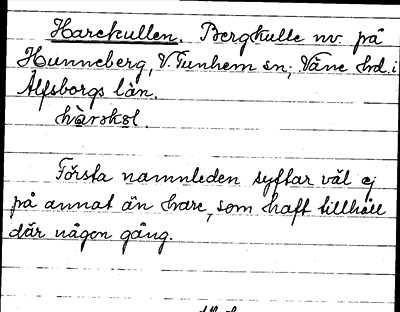 Harekullen. Bergkulle nv. på
Hunneberg, V. Tunhem sn, Väne hd. i
Älfsborgs län.
Första namnleden syftar väl ej
på annat än hare, som haft tillhåll
där någon gång.